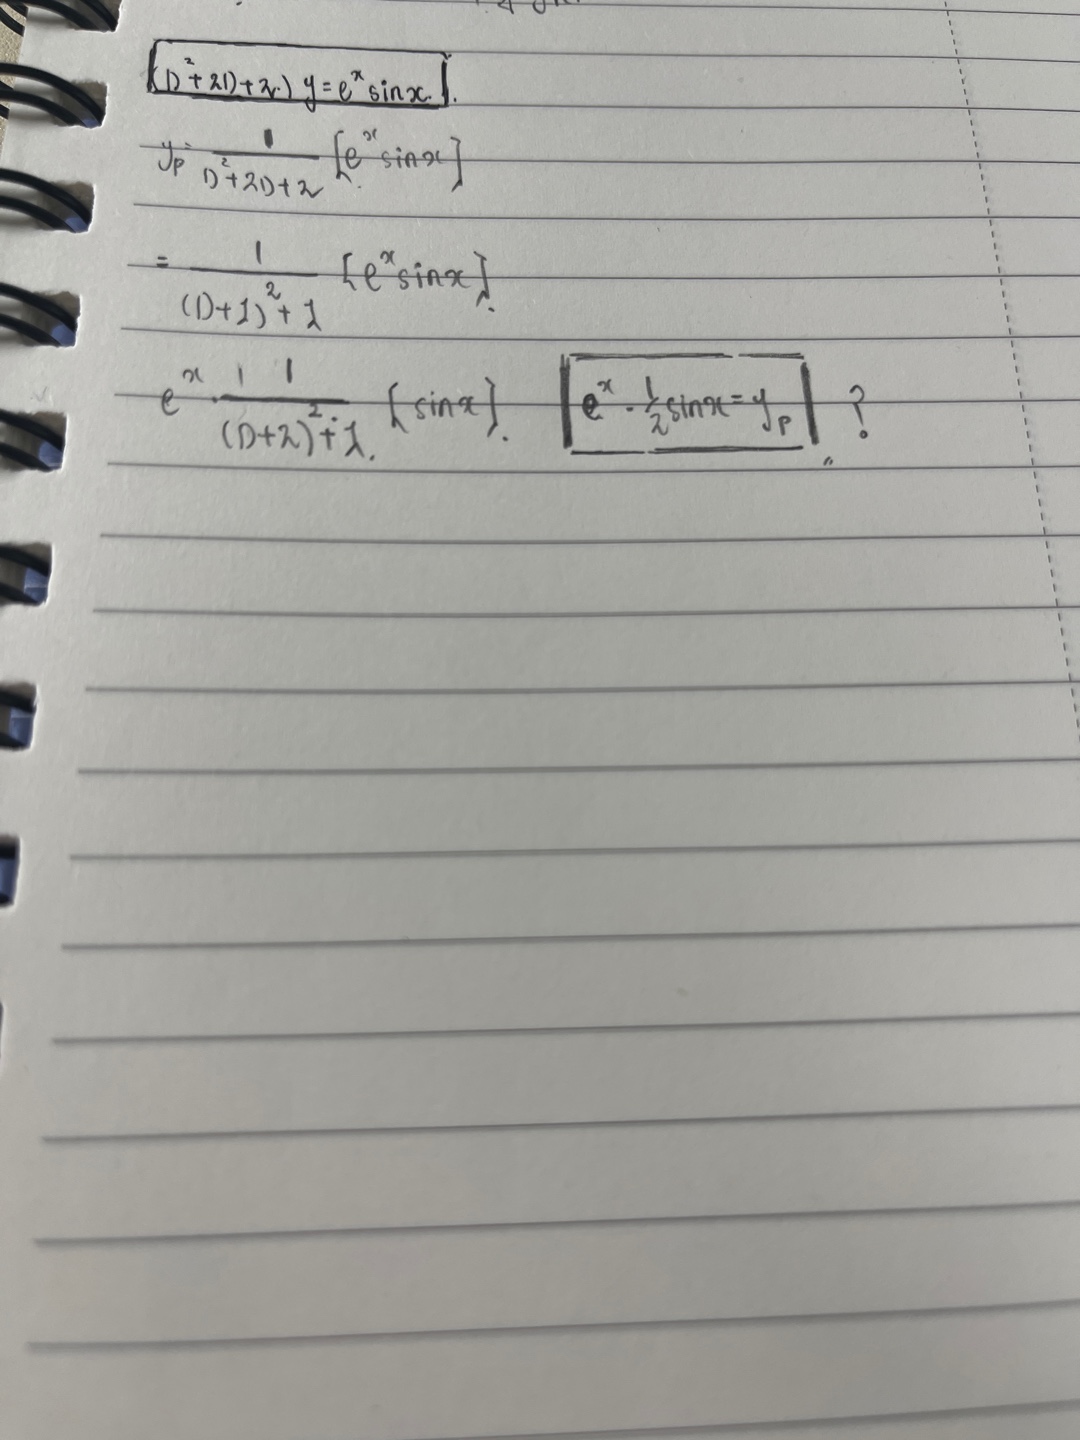 (D²+2D+2) y=eˣ sinx.
yₚ= 1/(D²+2D+2) [eˣ sinx]
= 1/((D+1)²+1) [eˣ sinx].
eˣ · 1 1/((D+2)²+1). [sinx]. eˣ · 1/2 sinx = yₚ ?